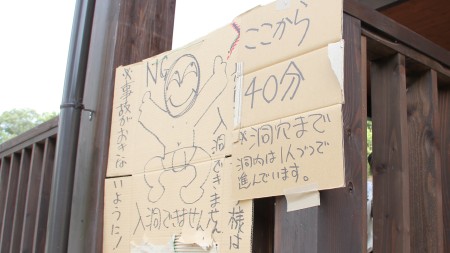 NG
ここから
40分
※洞穴まで
洞内は1人づつで
進んでいます。
様は
入洞できません
※事故がおきな
いように!